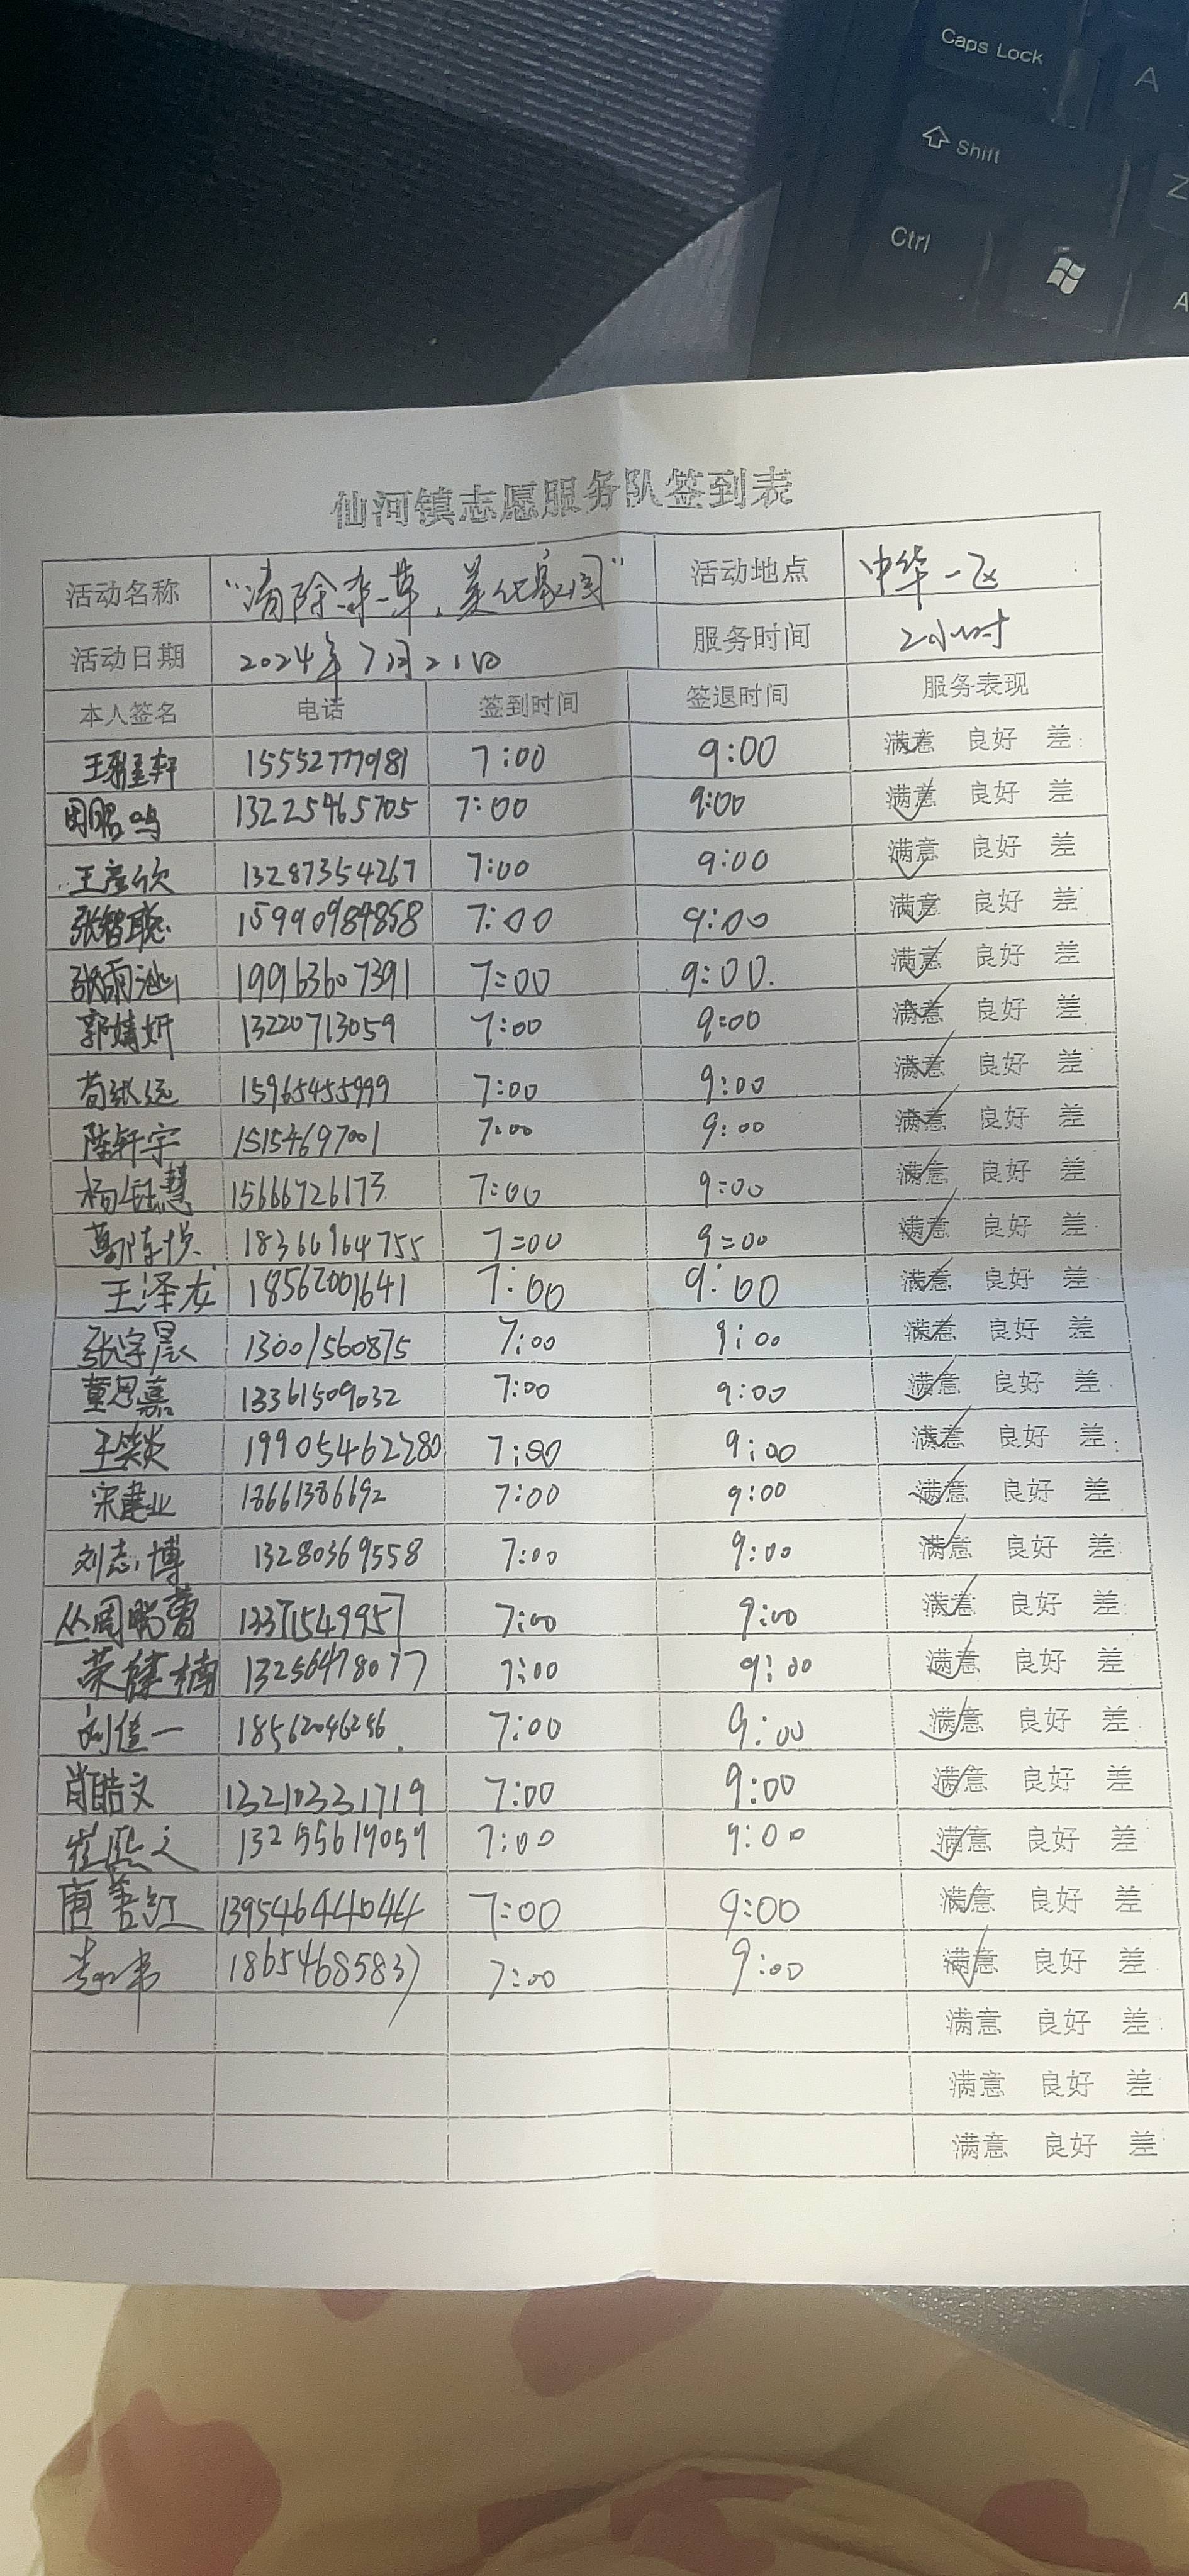 Caps Lock
A
Shift
Z
Ctrl
A
仙河镇志愿服务队签到表
活动名称 "清除杂草,美化家园" 活动地点 中华一飞
活动日期 2024年7月21日 服务时间 2小时
本人签名 电话 签到时间 签退时间 服务表现
王雅轩 15552777981 7:00 9:00 满意 良好 差
周昭鸣 13225465705 7:00 9:00 满意 良好 差
王彦欣 13287354267 7:00 9:00 满意 良好 差
张智聪 15990984858 7:00 9:00 满意 良好 差
张雨 19963607391 7:00 9:00. 满意 良好 差
郭婧妍 13220713059 7:00 9:00 满意 良好 差
苟张远 15965455999 7:00 9:00 满意 良好 差
陈轩宇 15154697001 7:00 9:00 满意 良好 差
杨钰慧 15666726173 7:00 9:00 满意 良好 差
18366964755 7:00 9:00 满意 良好 差
王泽龙 18562001641 7:00 9:00 满意 良好 差
张宇晨 13001560875 7:00 9:00 满意 良好 差
董思嘉 13361509032 7:00 9:00 满意 良好 差
王燚 19905462280 7:00 9:00 满意 良好 差
宋建业 18661386692 7:00 9:00 满意 良好 差
刘志博 13280369558 7:00 9:00 满意 良好 差
丛周 13371549957 7:00 9:00 满意 良好 差
荣臻楠 13256478077 7:00 9:00 满意 良好 差
刘佳一 18562046246 7:00 9:00 满意 良好 差
肖皓文 13210331719 7:00 9:00 满意 良好 差
崔熙之 13255619059 7:00 9:00 满意 良好 差
唐善红 13954644044 7:00 9:00 满意 良好 差
18654685837 7:00 9:00 满意 良好 差
满意 良好 差
满意 良好 差
满意 良好 差